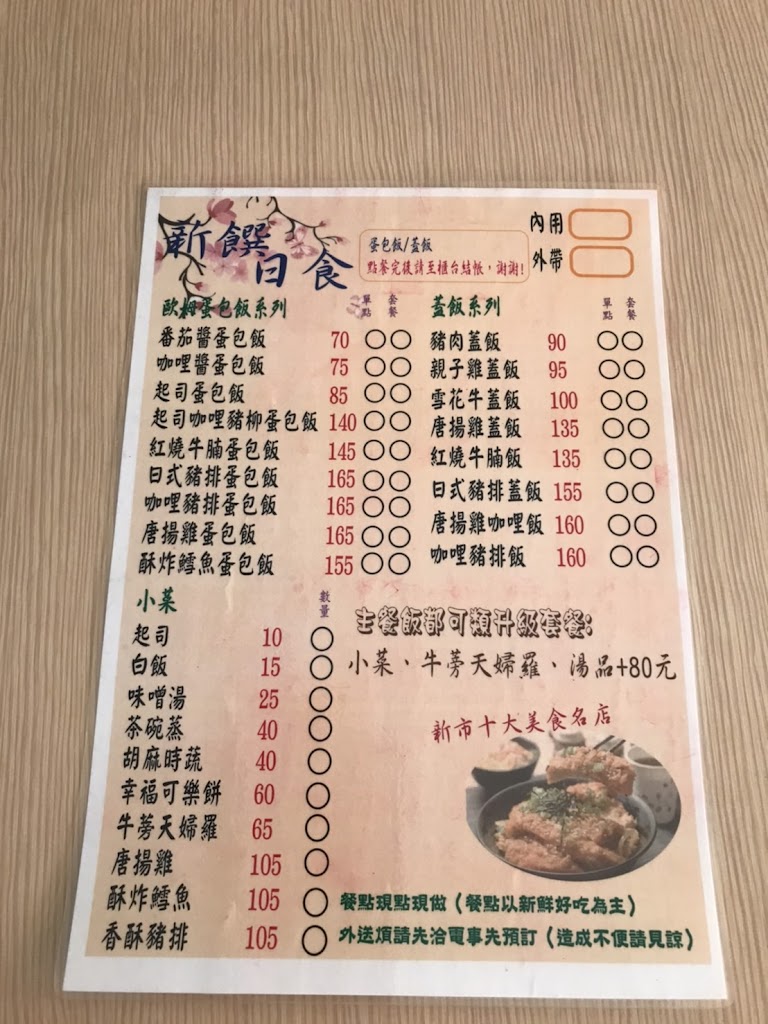 新饌
日食
蛋包飯/蓋飯
點餐完後請至櫃台結帳,謝謝!
內用
外帶
歐姆蛋包飯系列 單點 套餐
番茄醬蛋包飯 70
咖哩醬蛋包飯 75
起司蛋包飯 85
起司咖哩豬柳蛋包飯 140
紅燒牛腩蛋包飯 145
日式豬排蛋包飯 165
咖哩豬排蛋包飯 165
唐揚雞蛋包飯 165
酥炸鱈魚蛋包飯 155
蓋飯系列 單點 套餐
豬肉蓋飯 90
親子雞蓋飯 95
雪花牛蓋飯 100
唐揚雞蓋飯 135
紅燒牛腩飯 135
日式豬排蓋飯 155
唐揚雞咖哩飯 160
咖哩豬排飯 160
小菜 數量
起司 10
白飯 15
味噌湯 25
茶碗蒸 40
胡麻時蔬 40
幸福可樂餅 60
牛蒡天婦羅 65
唐揚雞 105
酥炸鱈魚 105
香酥豬排 105
主餐飯都可類升級套餐:
小菜、牛蒡天婦羅、湯品+80元
新市十大美食名店
餐點現點現做(餐點以新鮮好吃為主)
外送煩請先洽電事先預訂(造成不便請見諒)